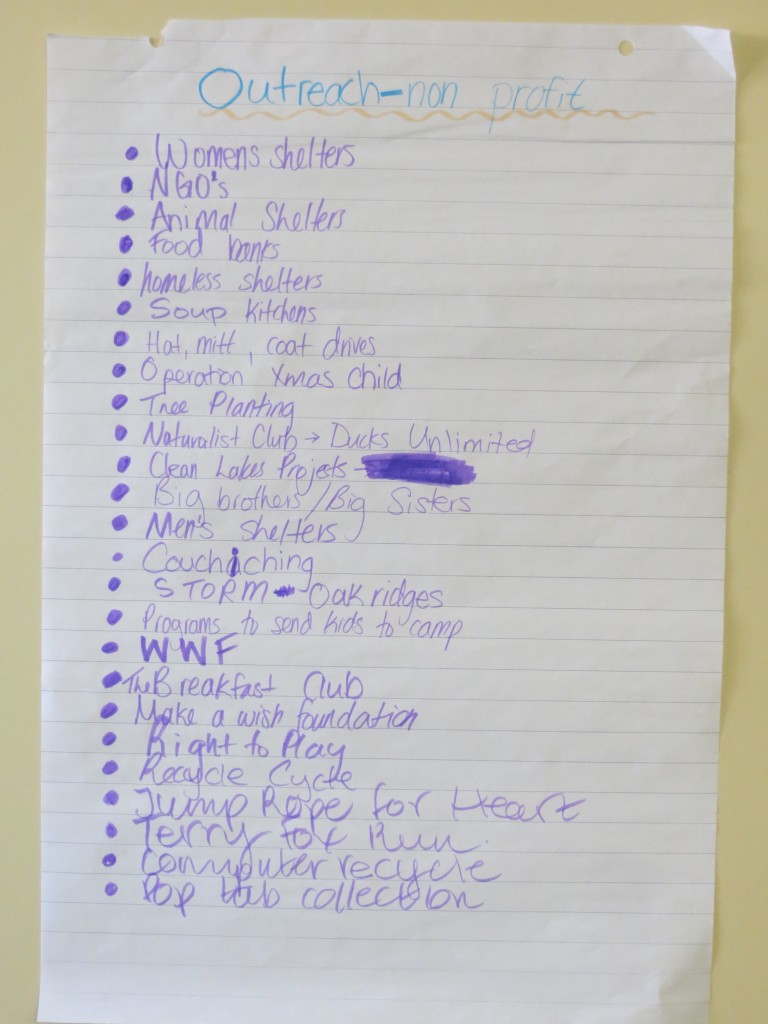 Outreach-non profit
• Womens shelters
• NGO's
• Animal Shelters
• Food banks
• homeless shelters
• Soup Kitchens
• Hat, mitt, coat drives
• Operation Xmas Child
• Tree Planting
• Naturalist Club → Ducks Unlimited
• Clean Lakes Projets -
• Big brothers/Big Sisters
• Men's Shelters
• Couchiching
• STORM - Oak ridges
• Programs to send kids to camp
• WWF
• The Breakfast Club
• Make a wish foundation
• Right to Play
• Recycle Cycle
• Jump Rope for Heart
• Terry Fox Run.
• Computer recycle
• Pop tab collection